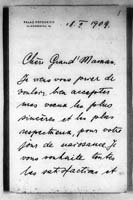 18. X 1909.
Chère Grand'Maman.
Je vous vous prie de
vouloir bien accepter
mes vœux les plus
sincères et les plus
respectueux, pour votre
jour de naissance.
Je vous souhaite toutes
les satisfactions et